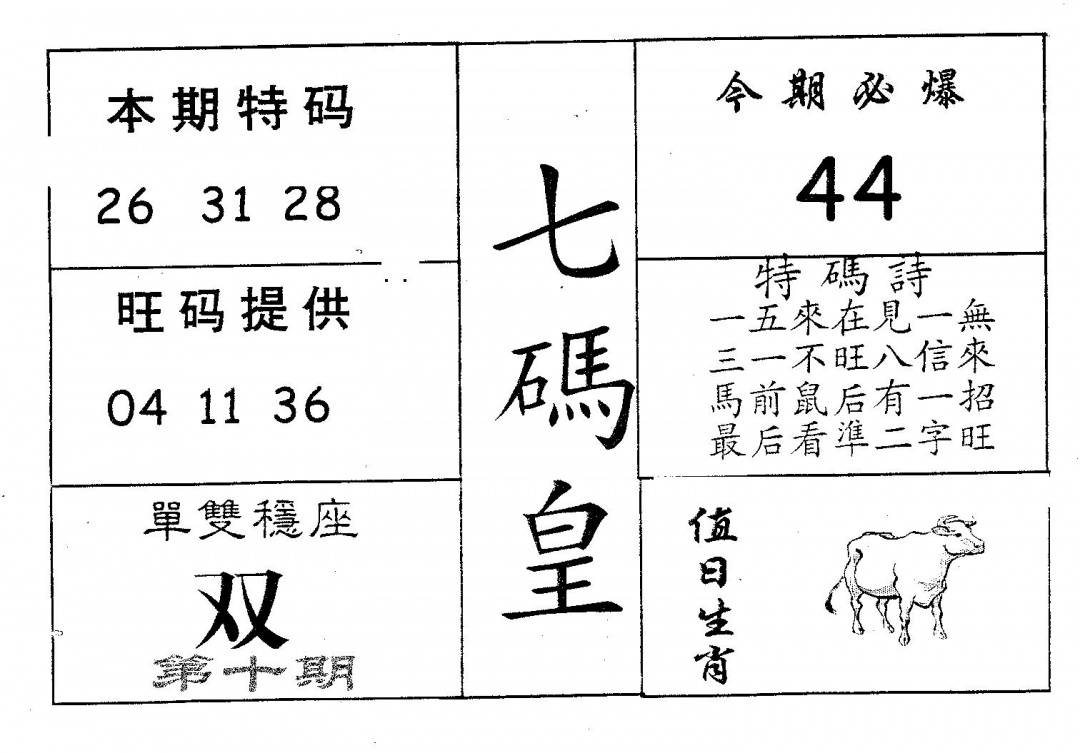 本期特码
26 31 28
旺码提供
04 11 36
單雙穩座
双
第十期
七
碼
皇
今期必爆
44
特碼詩
一五來在見一無
三一不旺八信來
馬前鼠后有一招
最后看準二字旺
值
日
生
肖